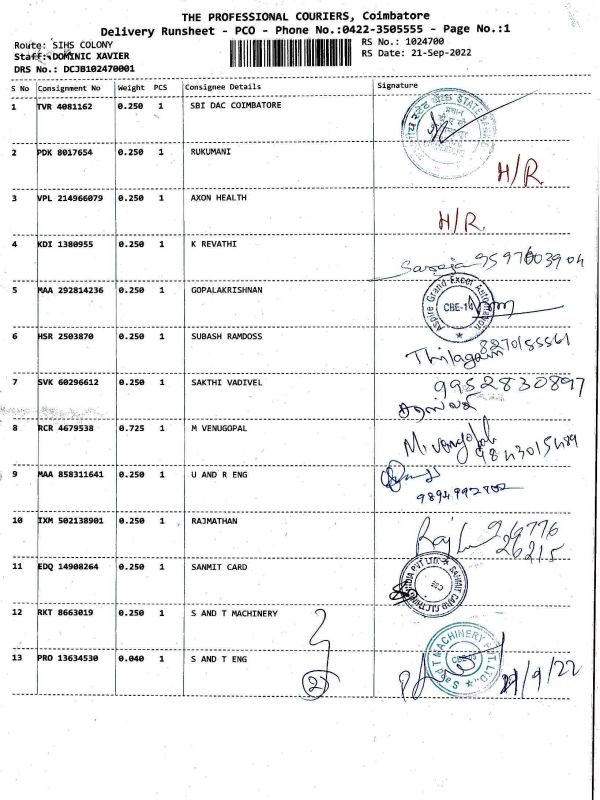 THE PROFESSIONAL COURIERS, Coimbatore
Delivery Runsheet - PCO - Phone No.:0422-3505555 - Page No.:1
Route: SIHS COLONY RS No.: 1024700
Staff: DOMINIC XAVIER RS Date: 21-Sep-2022
DRS No.: DCJB102470001
S No Consignment No Weight PCS Consignee Details Signature
1 TVR 4081162 0.250 1 SBI DAC COIMBATORE
2 PDK 8017654 0.250 1 RUKUMANI H/R
3 VPL 214966079 0.250 1 AXON HEALTH H/R
4 KDI 1380955 0.250 1 K REVATHI Saroja
5 MAA 292814236 0.250 1 GOPALAKRISHNAN Aspire Grand Excel Automation CBE-14
6 HSR 2503870 0.250 1 SUBASH RAMDOSS
7 SVK 60296612 0.250 1 SAKTHI VADIVEL 9952830897
8 RCR 4679538 0.725 1 M VENUGOPAL M. Venugopal
9 MAA 858311641 0.250 1 U AND R ENG
10 IXM 502138901 0.250 1 RAJMATHAN
11 EDQ 14908264 0.250 1 SANMIT CARD
12 RKT 8663019 0.250 1 S AND T MACHINERY
13 PRO 13634530 0.040 1 S AND T ENG S and T MACHINERY PVT. LTD.